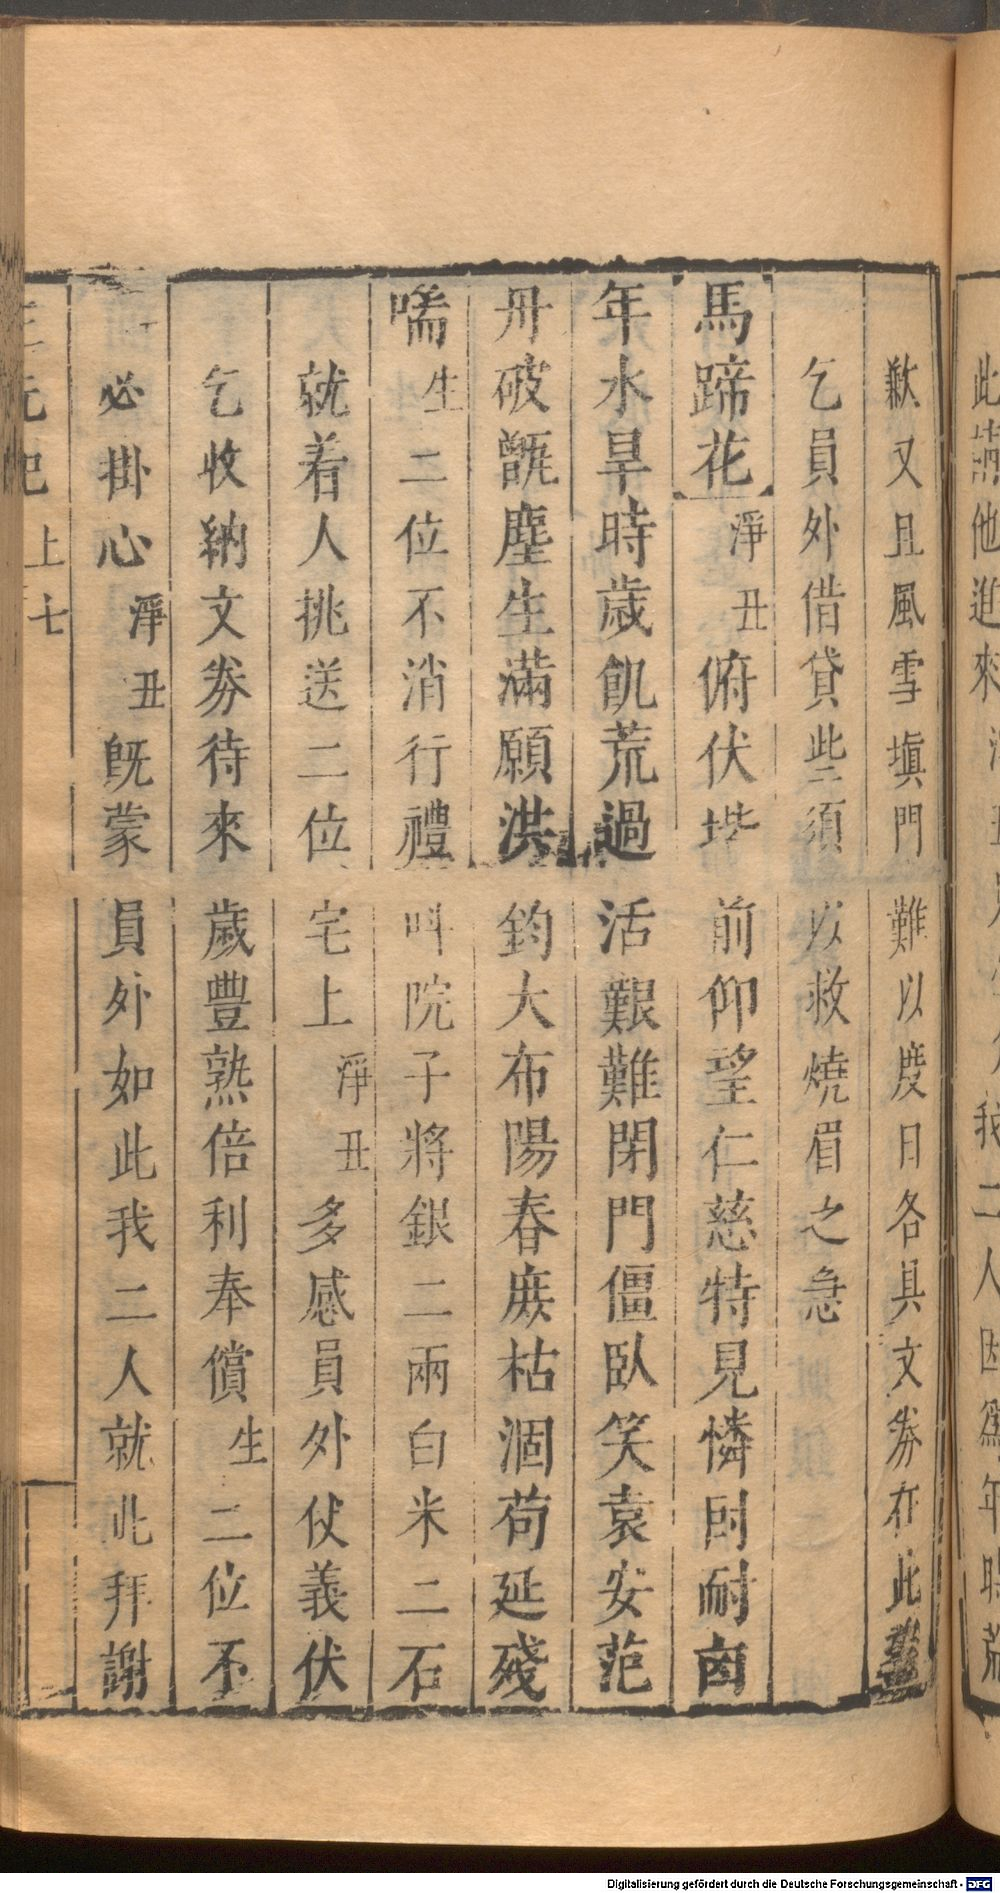 歉又且風雪塡門難以度日各具文券在此
乞員外借貸些須以救燒眉之急
馬蹄花 淨丑 俯伏堦前仰望仁慈特見憐囙耐鹵
年水旱時歳飢荒過活艱難閉門僵臥笑袁安范
丹破甑塵生滿願洪鈞大布陽春庻枯涸苟延殘
喘 生 二位不消行禮叫院子將銀二兩白米二石
就着人挑送二位宅上 淨丑 多感員外仗義伏
乞收納文券待來歲豐熟倍利奉償 生 二位不
必掛心 淨丑 旣蒙員外如此我二人就此拜謝
三元記 上 七
Digitalisierung gefördert durch die Deutsche Forschungsgemeinschaft - DFG